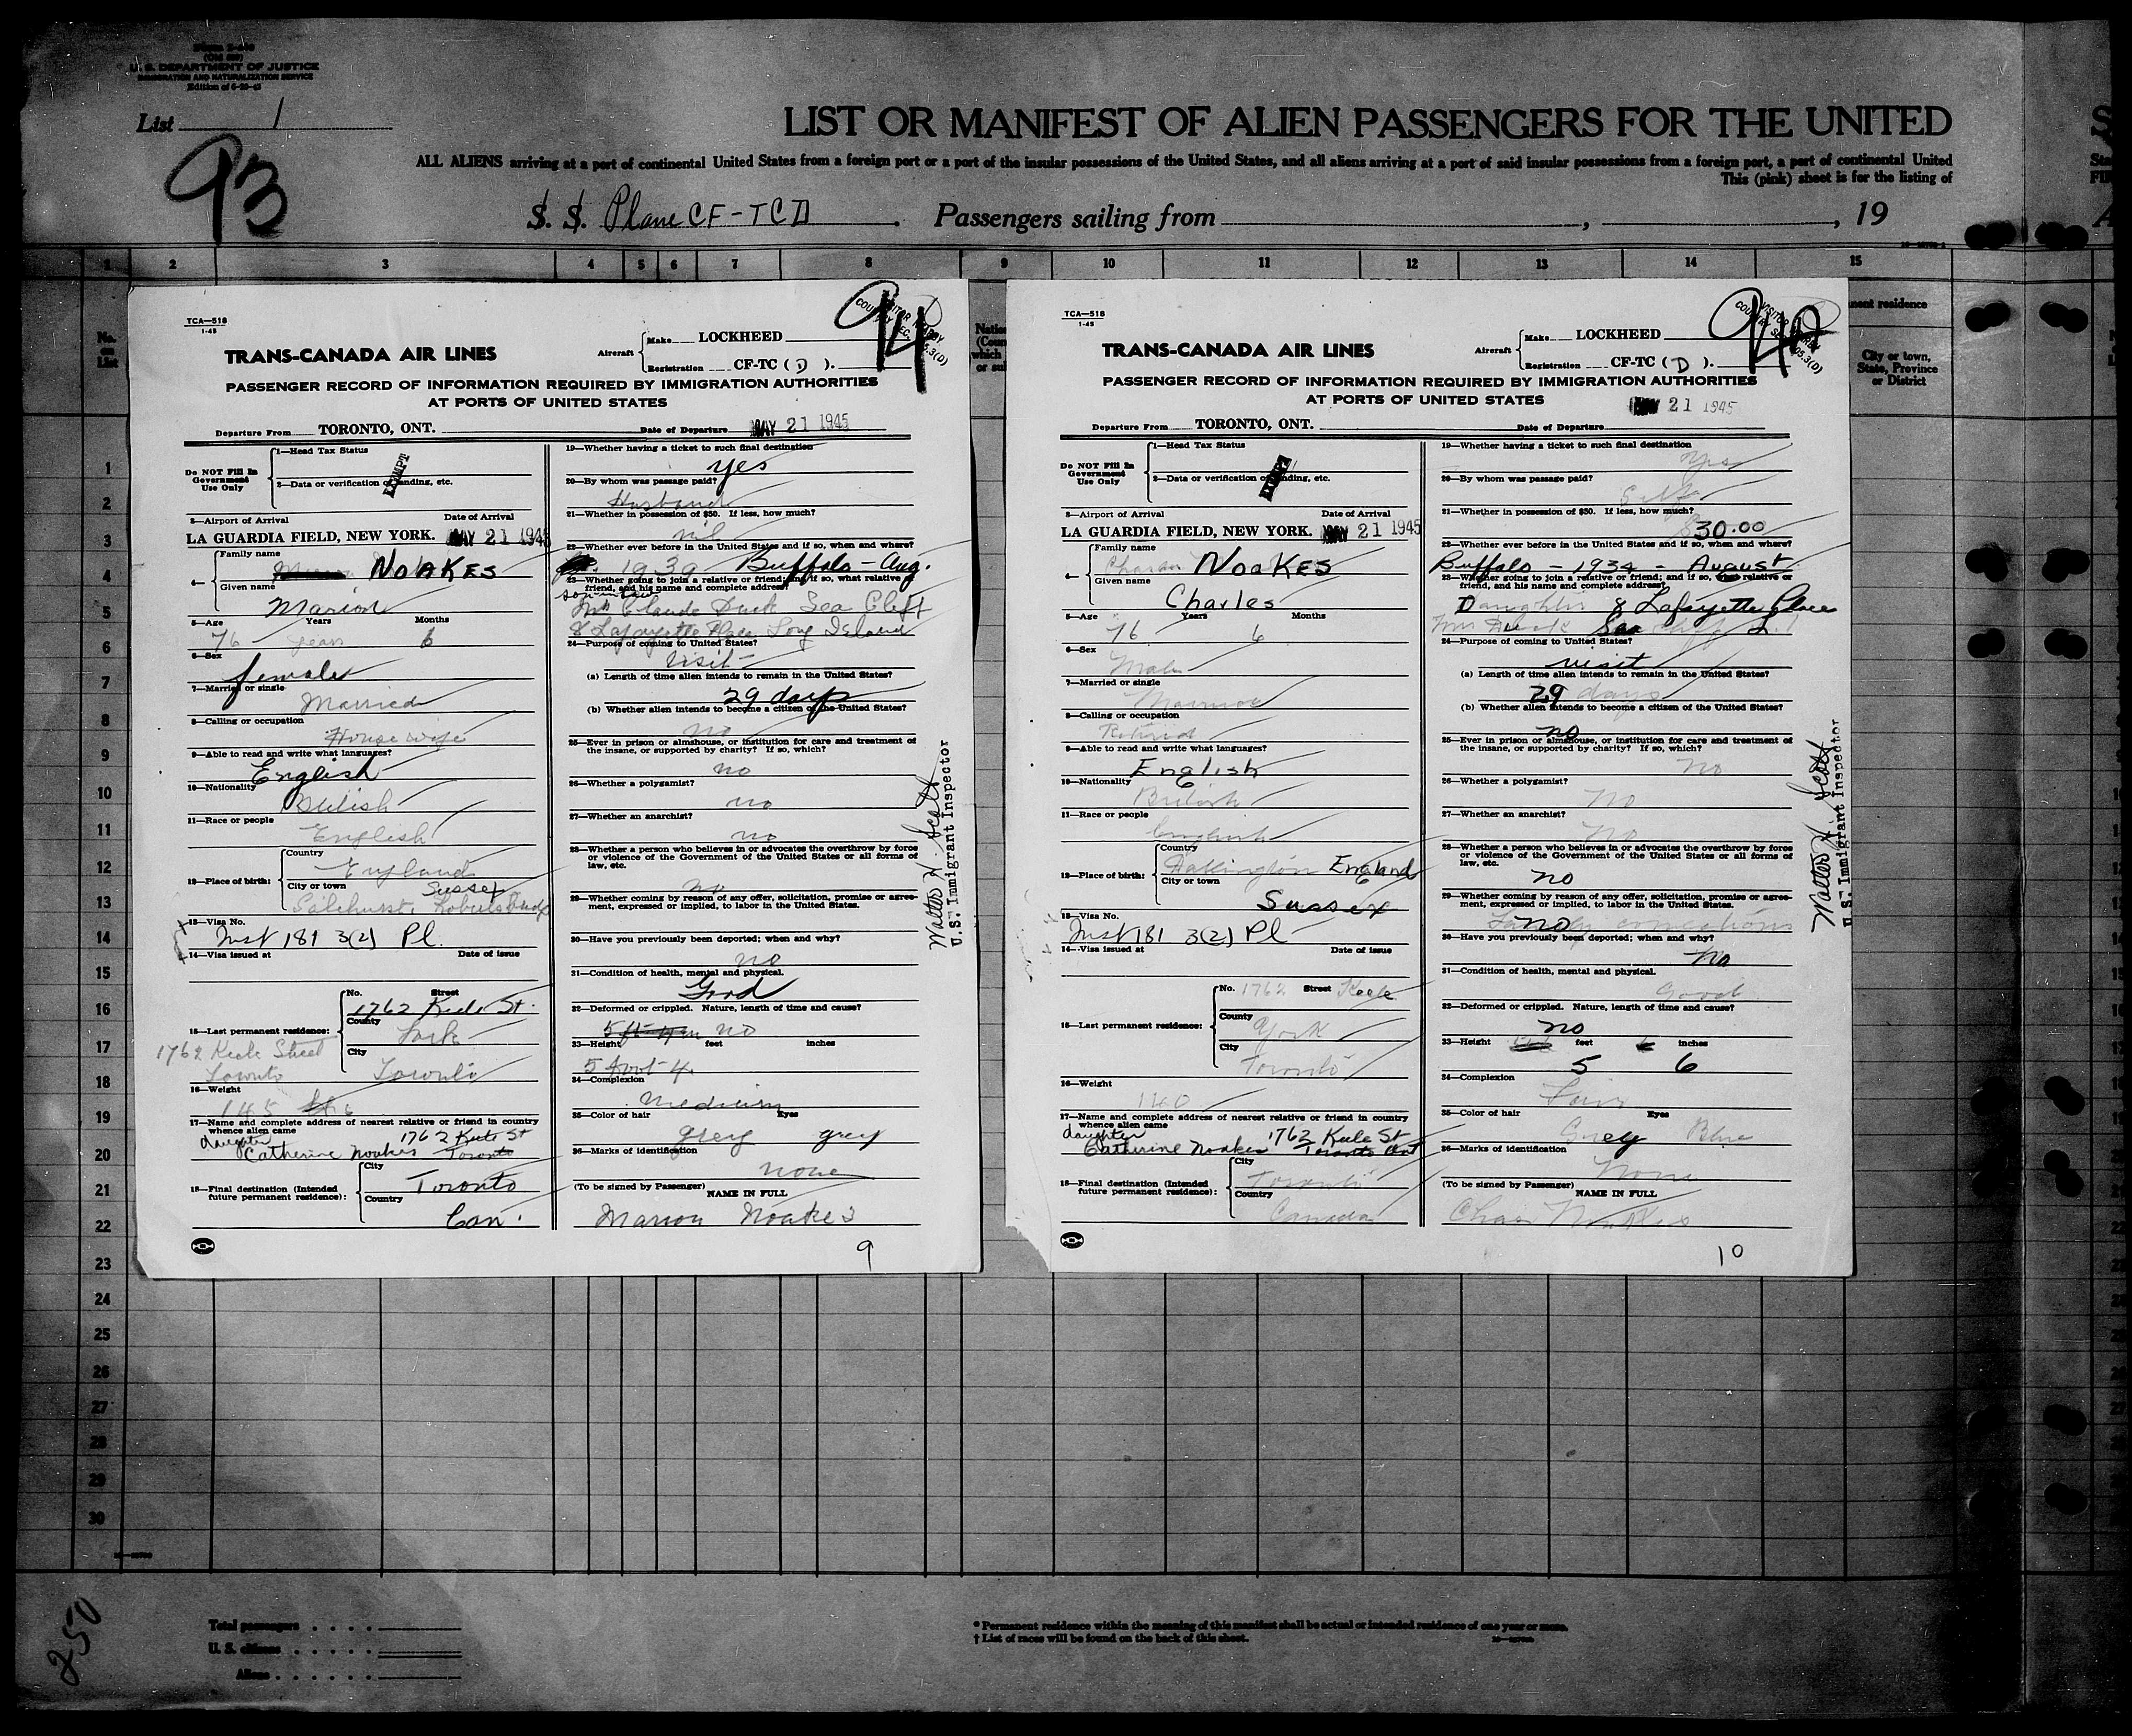 U. S. DEPARTMENT OF JUSTICE
IMMIGRATION AND NATURALIZATION SERVICE
Edition of 6-20-43
List 1
93
LIST OR MANIFEST OF ALIEN PASSENGERS FOR THE UNITED
ALL ALIENS arriving at a port of continental United States from a foreign port or a port of the insular possessions of the United States, and all aliens arriving at a port of said insular possessions from a foreign port, a port of continental United
This (pink) sheet is for the listing of
S. S. Plane CF-TCD. Passengers sailing from , , 19
1 2 3 4 5 6 7 8 9 10 11 12 13 14 15
No. on List
nent residence
City or town, State, Province or District
TCA—518
1-45
94
TRANS-CANADA AIR LINES
Aircraft
Make LOCKHEED
Registration CF-TC ( D ).
PASSENGER RECORD OF INFORMATION REQUIRED BY IMMIGRATION AUTHORITIES
AT PORTS OF UNITED STATES
Departure From TORONTO, ONT. Date of Departure MAY 21 1945
Do NOT Fill In Government Use Only
1—Head Tax Status
EXEMPT
2—Data or verification of landing, etc.
3—Airport of Arrival Date of Arrival
LA GUARDIA FIELD, NEW YORK. MAY 21 1945
4— Family name NOAKES
Given name Marion
5—Age Years Months
76 years 6
6—Sex
female
7—Married or single
Married
8—Calling or occupation
House wife
9—Able to read and write what languages?
English
10—Nationality
British
11—Race or people
English
12—Place of birth:
Country
England
City or town Sussex
Salehurst, Robertsbridge
13—Visa No.
Inst 181 3(2) Pl.
14—Visa issued at Date of issue
15—Last permanent residence:
No. Street
1762 Keele St.
County
York
City
Toronto
1762 Keele Street
Toronto
16—Weight
145 lbs
17—Name and complete address of nearest relative or friend in country
whence alien came
daughter 1762 Keele St
Catherine Noakes Toronto
18—Final destination (Intended
future permanent residence):
City
Toronto
Country
Can.
19—Whether having a ticket to such final destination
yes
20—By whom was passage paid?
Husband
21—Whether in possession of $50. If less, how much?
nil
22—Whether ever before in the United States and if so, when and where?
1939 Buffalo - Aug.
23—Whether going to join a relative or friend; and if so, what relative or
friend, and his name and complete address?
son in law
Mr Claude Duck Sea Cliff
8 Lafayette Place Long Island
24—Purpose of coming to United States?
Visit
(a) Length of time alien intends to remain in the United States?
29 days
(b) Whether alien intends to become a citizen of the United States?
no
25—Ever in prison or almshouse, or institution for care and treatment of
the insane, or supported by charity? If so, which?
no
26—Whether a polygamist?
no
27—Whether an anarchist?
no
28—Whether a person who believes in or advocates the overthrow by force
or violence of the Government of the United States or all forms of
law, etc.
no
29—Whether coming by reason of any offer, solicitation, promise or agree-
ment, expressed or implied, to labor in the United States.
30—Have you previously been deported; when and why?
no
31—Condition of health, mental and physical.
Good
32—Deformed or crippled. Nature, length of time and cause?
no
33—Height feet inches
5 foot 4.
34—Complexion
medium
35—Color of hair Eyes
grey grey
36—Marks of identification
none
(To be signed by Passenger) NAME IN FULL
Marion Noakes
9
Walter H. Scott
U.S. Immigrant Inspector
TCA—518
1-45
94
TRANS-CANADA AIR LINES
Aircraft
Make LOCKHEED
Registration CF-TC ( D ).
PASSENGER RECORD OF INFORMATION REQUIRED BY IMMIGRATION AUTHORITIES
AT PORTS OF UNITED STATES
MAY 21 1945
Departure From TORONTO, ONT. Date of Departure
Do NOT Fill In Government Use Only
1—Head Tax Status
EXEMPT
2—Data or verification of landing, etc.
3—Airport of Arrival Date of Arrival
LA GUARDIA FIELD, NEW YORK. MAY 21 1945
4— Family name Charles NOAKES
Given name Charles
5—Age Years Months
76 6
6—Sex
Male
7—Married or single
Married
8—Calling or occupation
Retired
9—Able to read and write what languages?
English
10—Nationality
British
11—Race or people
English
12—Place of birth:
Country
England
City or town
Sussex
13—Visa No.
Inst 181 3(2) Pl
14—Visa issued at Date of issue
15—Last permanent residence:
No. 1762 Street Keele
County
York
City
Toronto
16—Weight
17—Name and complete address of nearest relative or friend in country
whence alien came
daughter 1762 Keele St
Catherine Noakes Toronto Ont
18—Final destination (Intended
future permanent residence):
City
Toronto
Country
Canada
19—Whether having a ticket to such final destination
Yes
20—By whom was passage paid?
Self
21—Whether in possession of $50. If less, how much?
$30.00
22—Whether ever before in the United States and if so, when and where?
Buffalo - 1934 - August
23—Whether going to join a relative or friend; and if so, what relative or
friend, and his name and complete address?
Daughter 8 Lafayette Place
Mrs Duck Sea Cliff L.I
24—Purpose of coming to United States?
visit
(a) Length of time alien intends to remain in the United States?
29 days
(b) Whether alien intends to become a citizen of the United States?
no
25—Ever in prison or almshouse, or institution for care and treatment of
the insane, or supported by charity? If so, which?
no
26—Whether a polygamist?
No
27—Whether an anarchist?
No
28—Whether a person who believes in or advocates the overthrow by force
or violence of the Government of the United States or all forms of
law, etc.
no
29—Whether coming by reason of any offer, solicitation, promise or agree-
ment, expressed or implied, to labor in the United States.
no
30—Have you previously been deported; when and why?
No
31—Condition of health, mental and physical.
Good
32—Deformed or crippled. Nature, length of time and cause?
no
33—Height feet inches
5 6
34—Complexion
Fair
35—Color of hair Eyes
Grey Blue
36—Marks of identification
None
(To be signed by Passenger) NAME IN FULL
Chas Noakes
10
Walter H. Scott
U.S. Immigrant Inspector
1
2
3
4
5
6
7
8
9
10
11
12
13
14
15
16
17
18
19
20
21
22
23
24
25
26
27
28
29
30
250
Total passengers
U. S. citizens
Aliens
* Permanent residence within the meaning of this manifest shall be actual or intended residence of one year or more.
† List of races will be found on the back of this sheet.